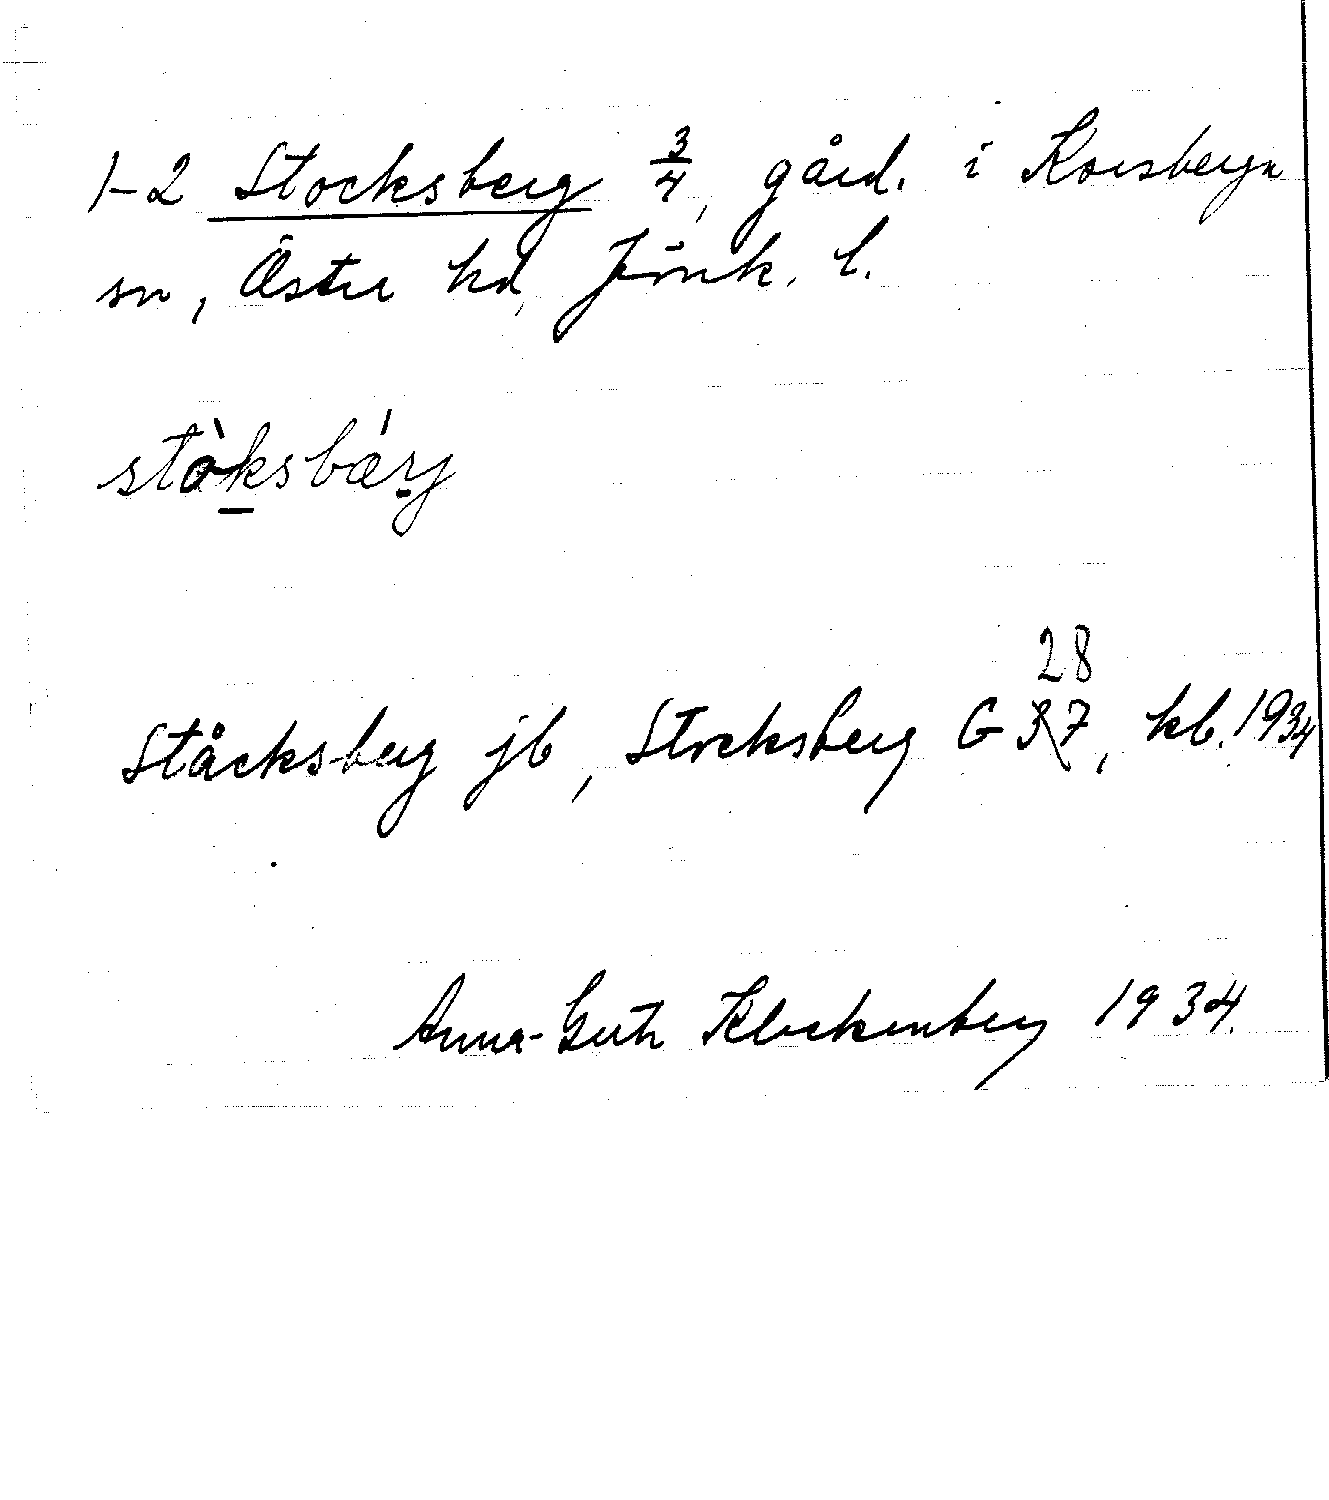 1-2 Stocksberg 3/4, gård. i Korsberga
sn, Östra hd, Jönk. l.
stòksbǽrj
28
Ståcksberg jb, Stocksberg G 37, kb. 1934
Anna-Greta Klockenberg 1934.